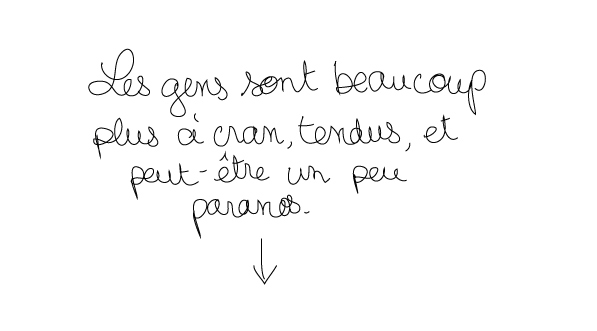 Les gens sont beaucoup
plus à cran, tendus, et
peut-être un peu
paranos.